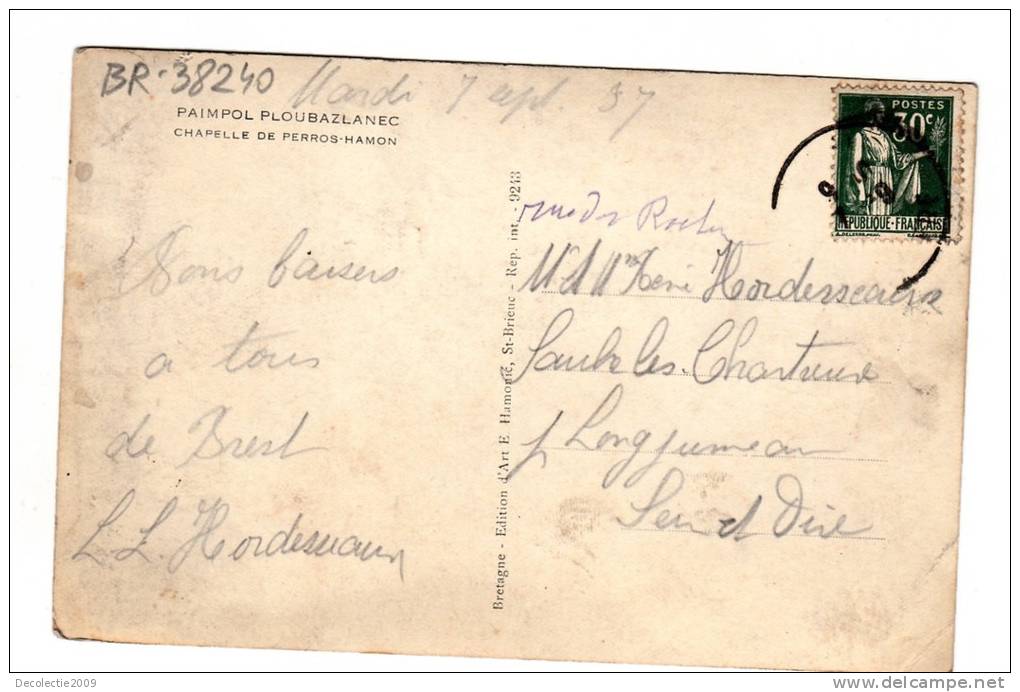 BR-38240
Mardi 7 sept. 37
PAIMPOL PLOUBAZLANEC
CHAPELLE DE PERROS-HAMON
Bons baisers
à tous
de Brest
L L. Hordesseaux
Bretagne - Edition d'Art E Hamonic, St-Brieuc - Rep. int. - 9243
POSTES
30c
REPUBLIQUE-FRANÇAISE
rue des
M et Mme René Hordesseaux
Saulx les Chartreux
Longjumeau
Seine et Oise
Decolectie2009
www.delcampe.net